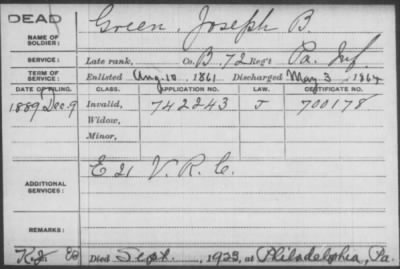 DEAD
NAME OF SOLDIER: Green, Joseph B.
SERVICE: Late rank, Co. B, 72 Reg't Pa. Inf.
TERM OF SERVICE: Enlisted Aug. 10, 1861 Discharged May 3, 1864
DATE OF FILING. CLASS. APPLICATION NO. LAW. CERTIFICATE NO.
1889 Dec. 9 Invalid, 742243 J 700178
Widow,
Minor,
ADDITIONAL SERVICES: E 21 V. R. C.
REMARKS:
Died Sept. , 1923, at Philadelphia, Pa.